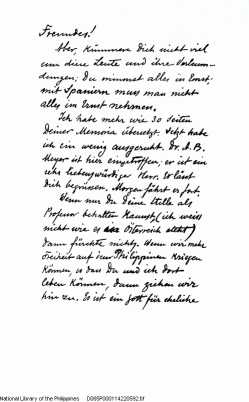 Freundes!
Aber, kümmere Dich nicht viel
um diese Leute und ihre Verleum-
dungen; Du nimmst alles in Ernst;
mit Spaniern muss man nicht
alles in Ernst nehmen.
Ich habe mehr wie 30 Seiten
Deiner Memoria übersetzt. Jetzt habe
ich ein wenig ausgeruht. Dr. A. B.
Meyer ist hier eingetroffen; er ist ein
sehr liebenswürdiger Herr. Er lässt
Dich begrüssen. Morgen fährt er fort.
Wenn nur Du Deine Stelle als
Professor behalten kannst (ich weiss
nicht wie es in Österreich steht)
dann fürchte nichts. Wenn wir mehr
Freiheit auf den Philippinen kriegen
können, so dass Du und ich dort
leben können, dann ziehen wir
hin zu. Es ist ein Gott für ehrliche
National Library of the Philippines - D085P000114220592.tif